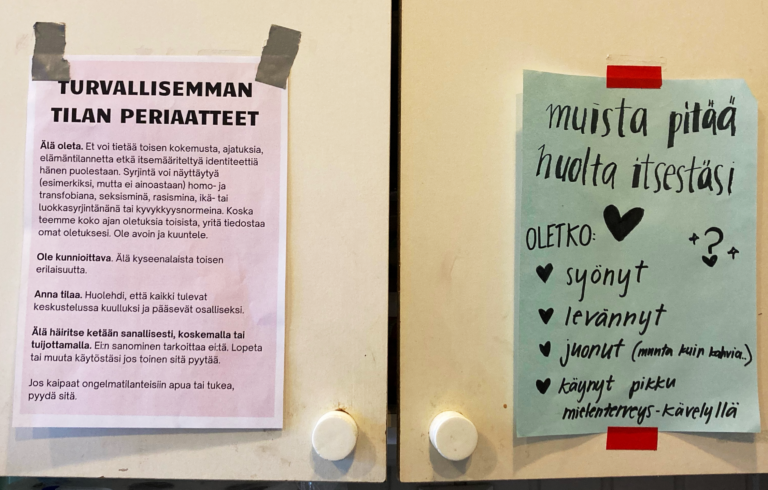 TURVALLISEMMAN
TILAN PERIAATTEET
Älä oleta. Et voi tietää toisen kokemusta, ajatuksia,
elämäntilannetta etkä itsemääriteltyä identiteettiä
hänen puolestaan. Syrjintä voi näyttäytyä
(esimerkiksi, mutta ei ainoastaan) homo- ja
transfobiana, seksisminä, rasismina, ikä- tai
luokkasyrjintänänä tai kyvykkyysnormeina. Koska
teemme koko ajan oletuksia toisista, yritä tiedostaa
omat oletuksesi. Ole avoin ja kuuntele.
Ole kunnioittava. Älä kyseenalaista toisen
erilaisuutta.
Anna tilaa. Huolehdi, että kaikki tulevat
keskustelussa kuulluksi ja pääsevät osalliseksi.
Älä häiritse ketään sanallisesti, koskemalla tai
tuijottamalla. Ei:n sanominen tarkoittaa ei:tä. Lopeta
tai muuta käytöstäsi jos toinen sitä pyytää.
Jos kaipaat ongelmatilanteisiin apua tai tukea,
pyydä sitä.
muista pitää
huolta itsestäsi
OLETKO:
?
syönyt
levännyt
juonut (muuta kuin kahvia..)
käynyt pikku
mielenterveys-kävelyllä